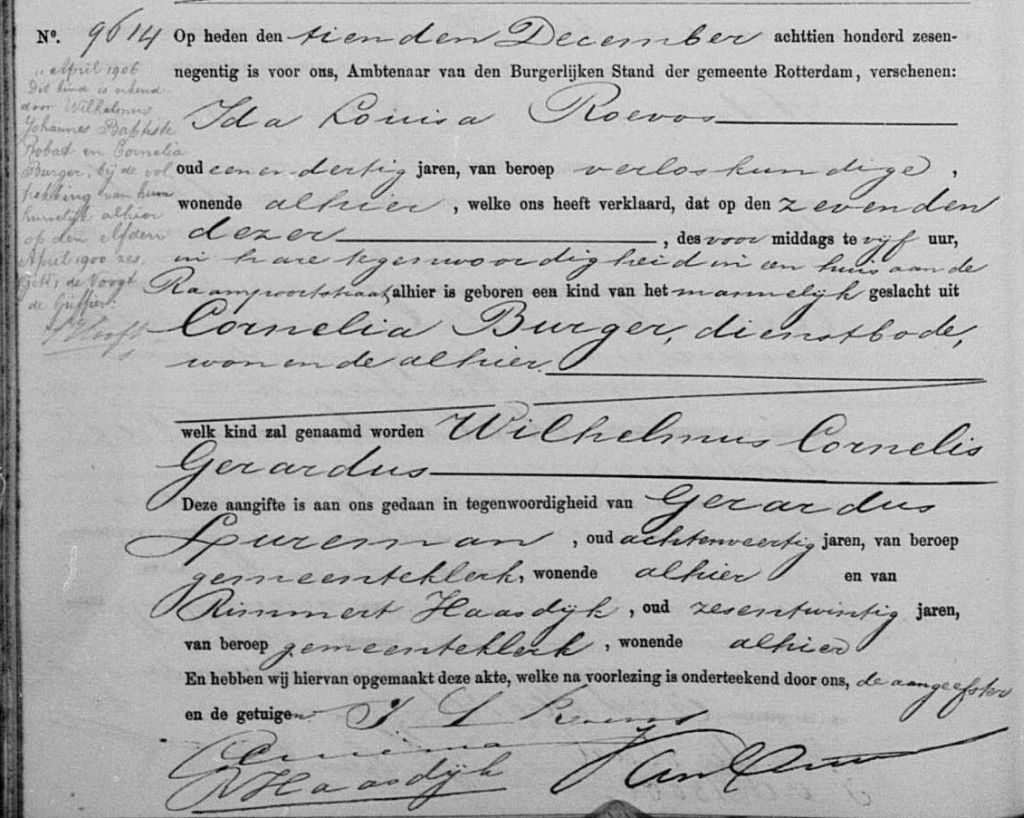 No. 9614 Op heden den tienden December achttien honderd zesen-
negentig is voor ons, Ambtenaar van den Burgerlijken Stand der gemeente Rotterdam, verschenen:
Ida Louisa Roevos
oud eenendertig jaren, van beroep verloskundige,
wonende alhier, welke ons heeft verklaard, dat op den zevenden
dezer, des voor middags te vijf uur,
in hare tegenwoordigheid in een huis aan de
Raampoortstraat alhier is geboren een kind van het mannelijk geslacht uit
Cornelia Burger, dienstbode,
wonende alhier.
welk kind zal genaamd worden Wilhelmus Cornelis
Gerardus
Deze aangifte is aan ons gedaan in tegenwoordigheid van Gerardus
Lureman, oud achtenveertig jaren, van beroep
gemeenteklerk, wonende alhier en van
Rimmert Haasdijk, oud zesentwintig jaren,
van beroep gemeenteklerk, wonende alhier
En hebben wij hiervan opgemaakt deze akte, welke na voorlezing is onderteekend door ons, de aangeefster
en de getuigen.
I L
R Haasdijk
April 1906
Dit kind is erkend
door Wilhelmus
Johannes Baptiste
Robat en Cornelia
Burger, bij de vol
trekking van hun
huwelijk alhier
op den elfden
April 1900 zes.
Get. de Voogt
de Griffier